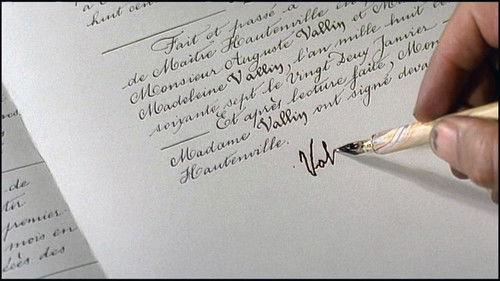 huit cen
Fait et passé à
de Maître Hautenville en
Monsieur Auguste Vallin et M
Madeleine Vallin, l'an mille huit c
soixante sept le Vingt Deux Janvier
Et après lecture faite, Mon
Madame Vallin ont signé deva
Hautenville.
Val
de
ter
premier
mois en
des